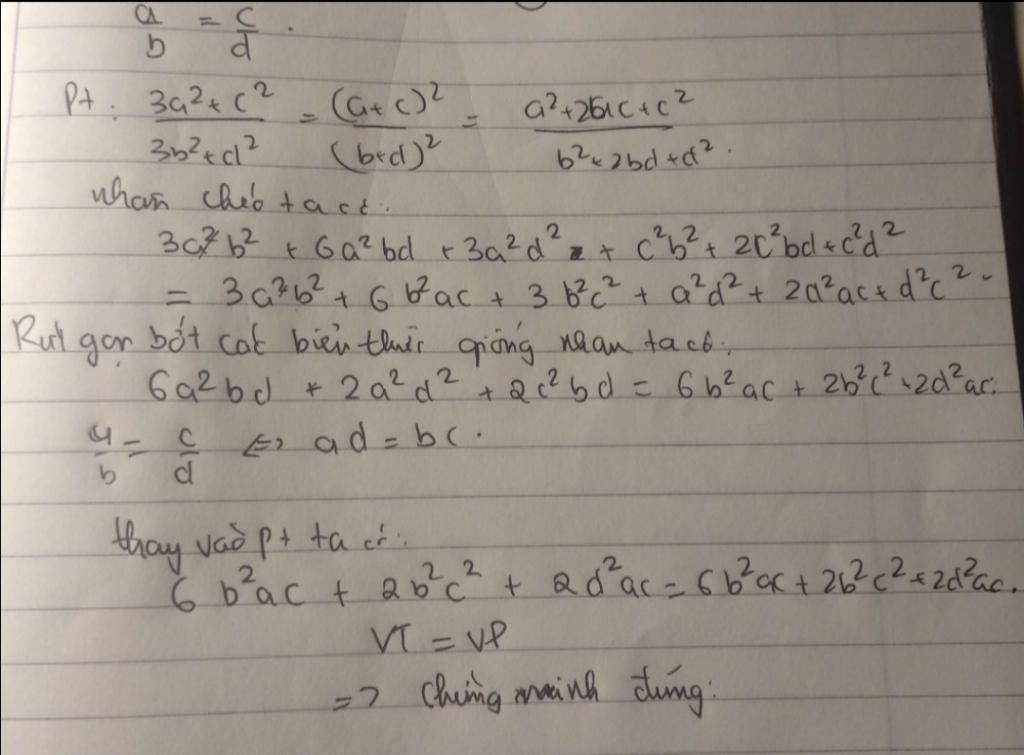 a/b = c/d .
Pt : (3a² + c²)/(3b² + d²) = (a + c)²/(b + d)² = (a² + 2ac + c²)/(b² + 2bd + d²) .
nhân chéo ta có :
3a²b² + 6a²bd + 3a²d² + c²b² + 2c²bd + c²d²
= 3a²b² + 6b²ac + 3b²c² + a²d² + 2d²ac + d²c² .
Rút gọn bớt các biểu thức giống nhau ta có :
6a²bd + 2a²d² + 2c²bd = 6b²ac + 2b²c² + 2d²ac .
a/b = c/d <=> ad = bc .
thay vào pt ta có :
6b²ac + 2b²c² + 2d²ac = 6b²ac + 2b²c² + 2d²ac .
VT = VP
=> Chứng minh đúng .